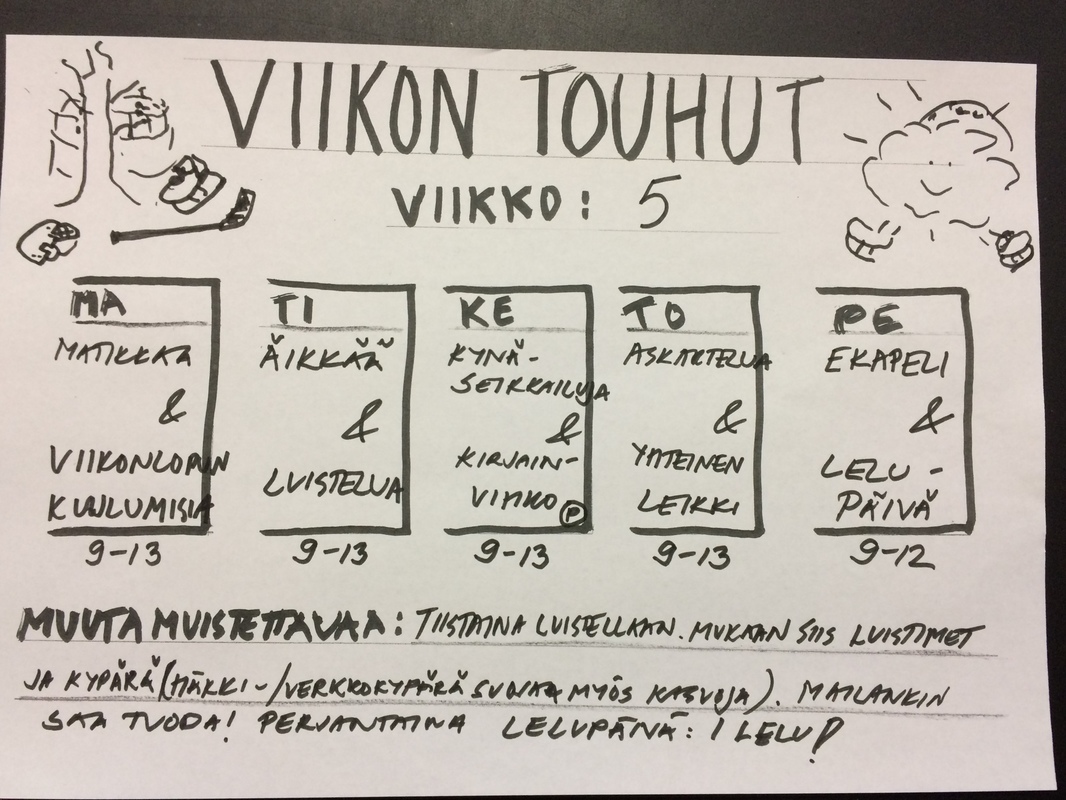 VIIKON TOUHUT
VIIKKO: 5
MA
MATIKKAA
&
VIIKONLOPUN
KUULUMISIA
9-13
TI
ÄIKKÄÄ
&
LUISTELUA
9-13
KE
KYNÄ-
SEIKKAILUJA
&
KIRJAIN-
VIHKO P
9-13
TO
ASKARTELUA
&
YHTEINEN
LEIKKI
9-13
PE
EKAPELI
&
LELU-
PÄIVÄ
9-12
MUUTA MUISTETTAVAA: TIISTAINA LUISTELLAAN. MUKAAN SIIS LUISTIMET
JA KYPÄRÄ (HÄKKI-/VERKKOKYPÄRÄ SUOJAA MYÖS KASVOJA). MAILANKIN
SAA TUODA! PERJANTAINA LELUPÄIVÄ: 1 LELU!